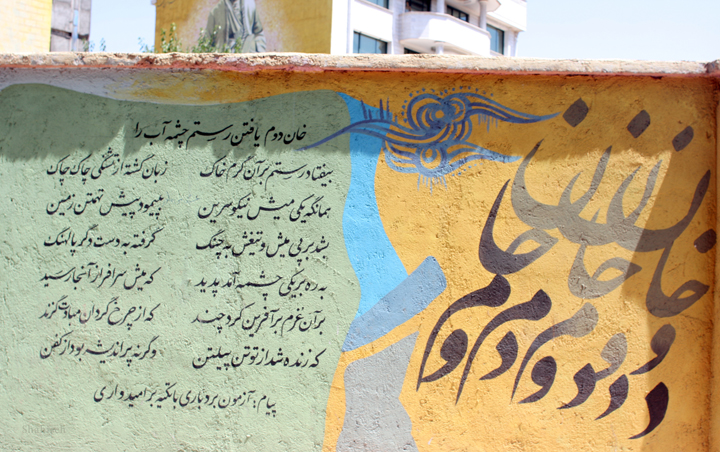 خان دوم یافتن رستم چشمه آب را
بیفتاد رستم بر آن گرم خاک زبان گشته از تشنگی چاک چاک
همانگه یکی میش نیکوسرین بپیمود پیش تهمتن زمین
بشد بر پی میش و تیغش به چنگ گرفته به دست دگر پالهنگ
به ره بر یکی چشمه آمد پدید که میش سرافراز آنجا رسید
بر آن غرم بر آفرین کرد چند که از چرخ گردان مبادت گزند
که زنده شد از تو تن پیلتن وگرنه پر اندیشه بود از کفن
پیام: آزمون بردباری با تکیه بر امیدواری
خان خان خان
دوم دوم دوم